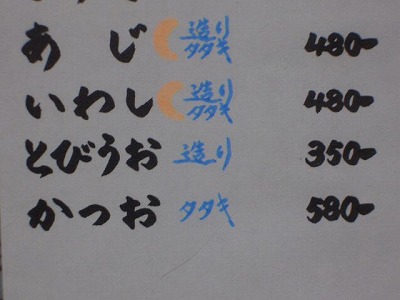 あじ 造り タタキ 480-
いわし 造り タタキ 480-
とびうお 造り 350-
かつお タタキ 580-